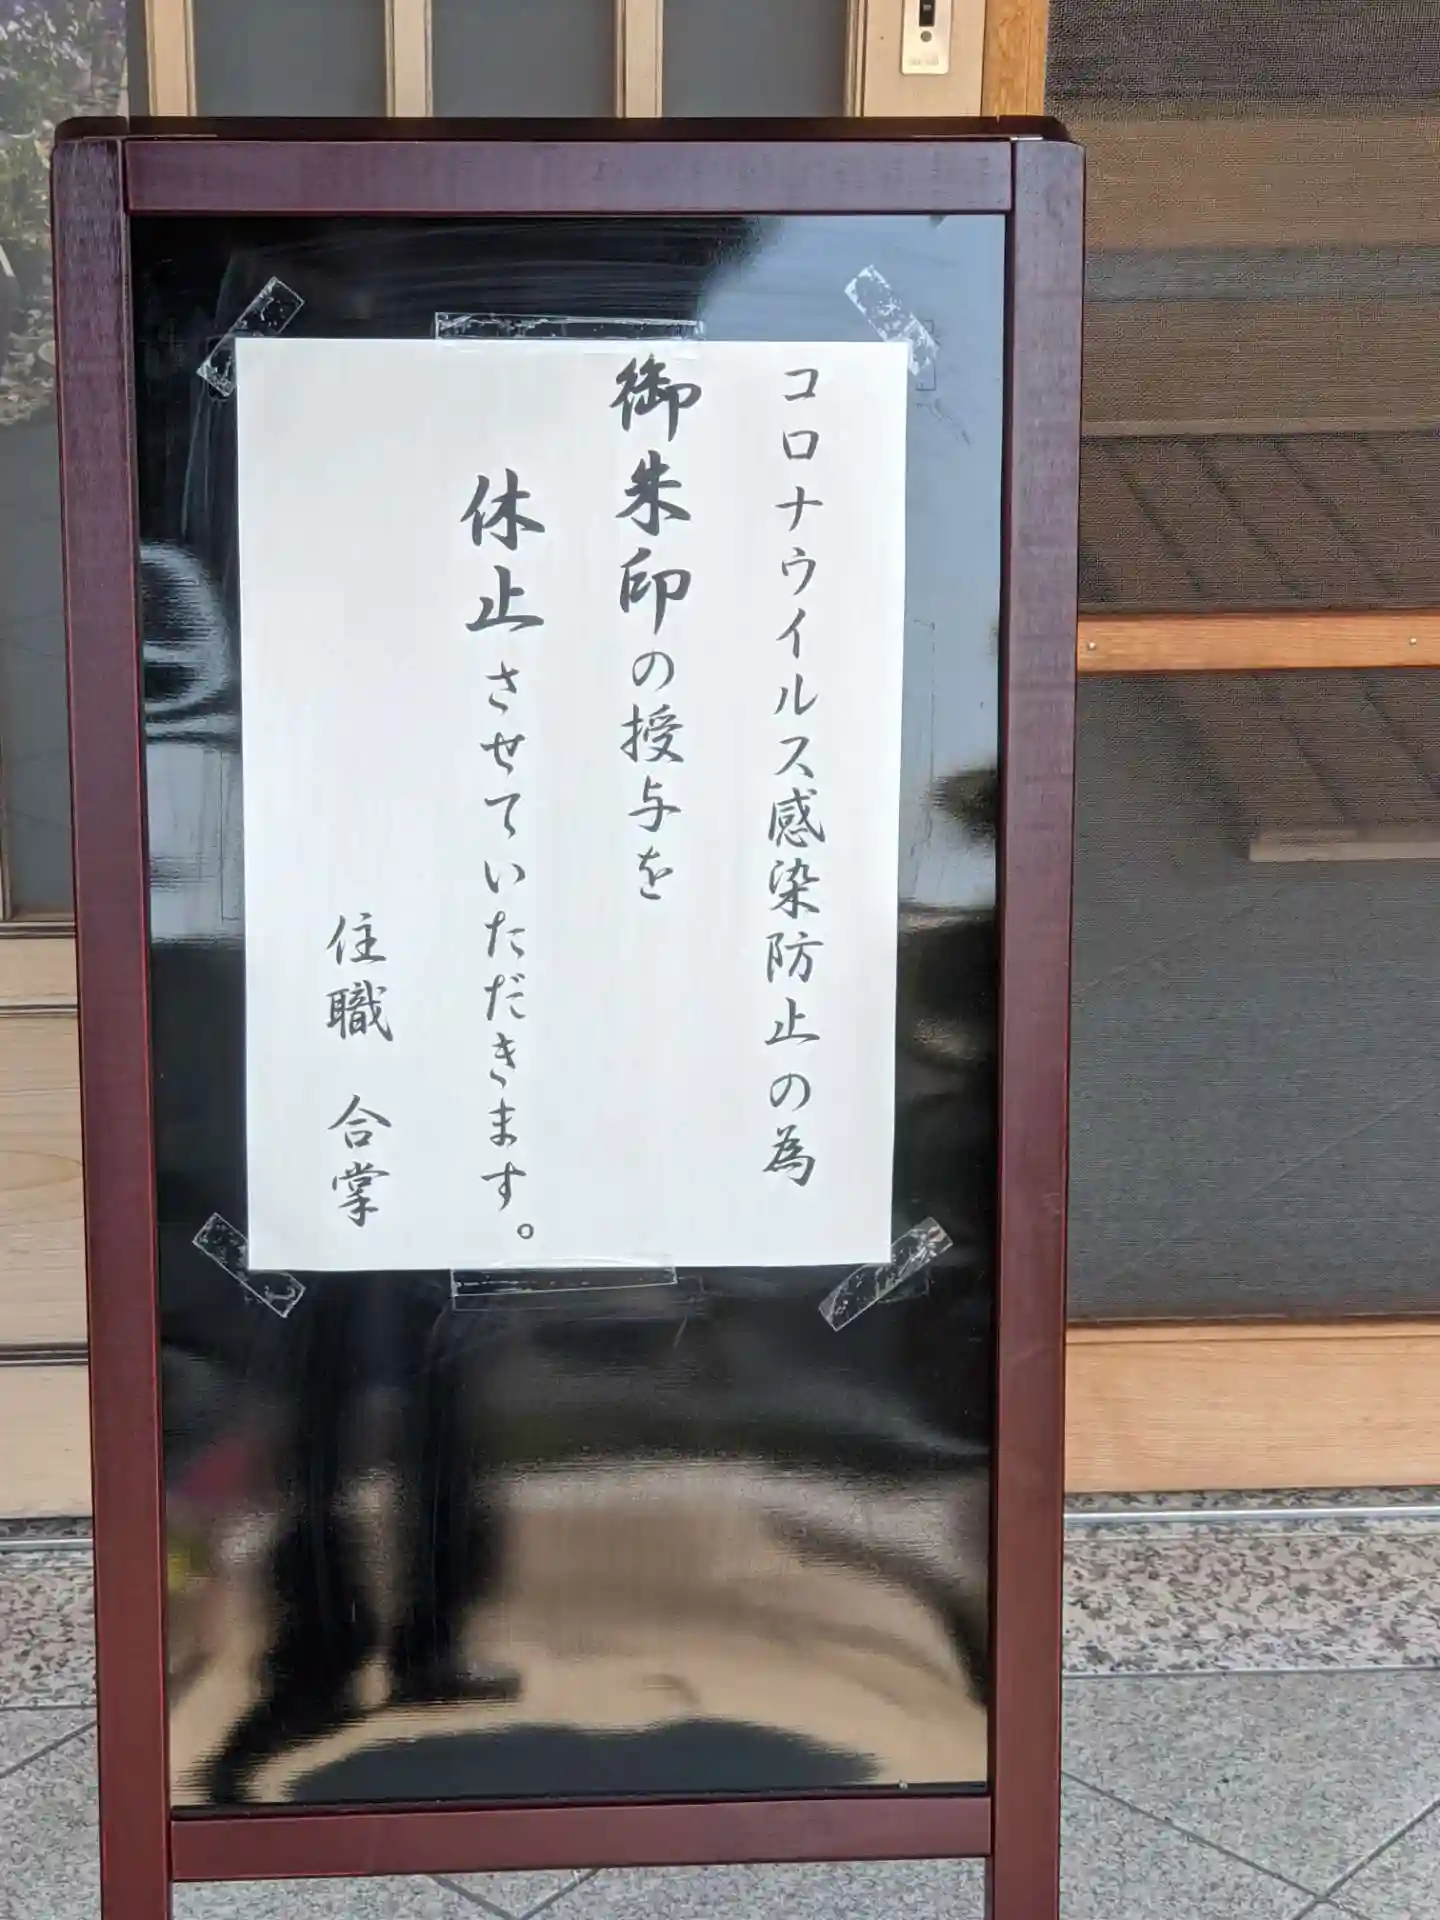 コロナウイルス感染防止の為
御朱印の授与を
休止させていただきます。
住職 合掌